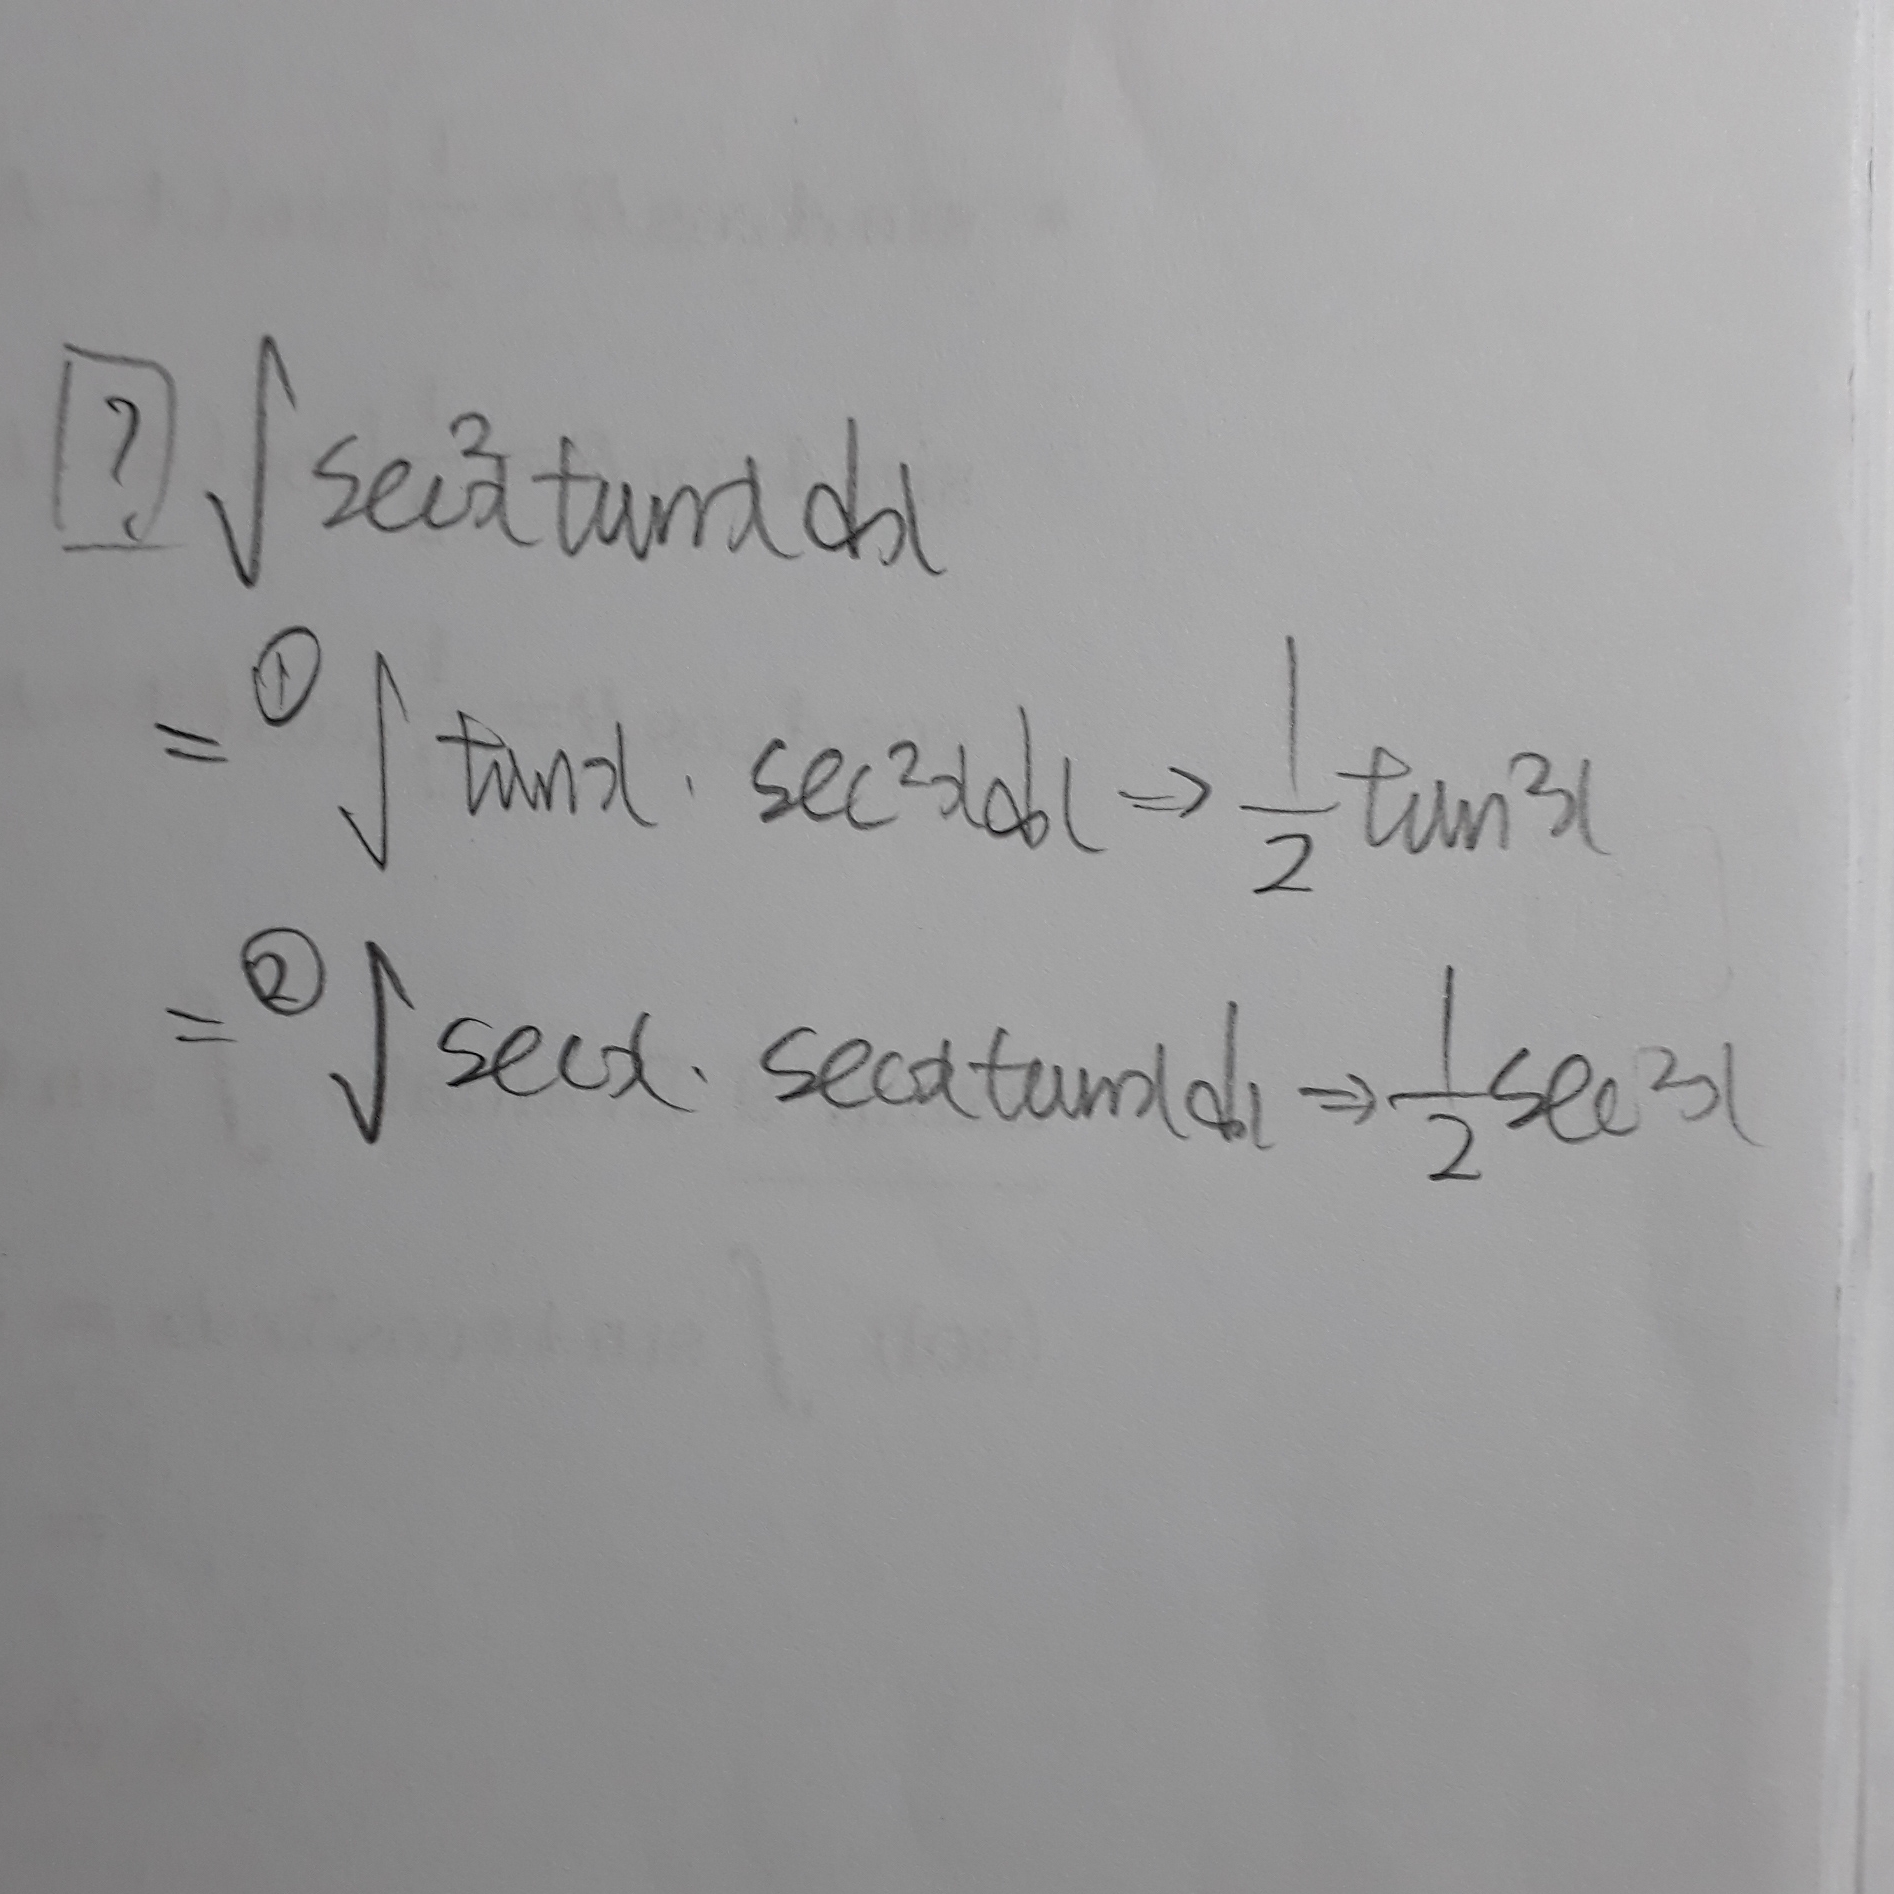 ? ∫ sec²x tanx dx
= ① ∫ tanx · sec²x dx ⇒ 1/2 tan²x
= ② ∫ secx · secx tanx dx ⇒ 1/2 sec²x